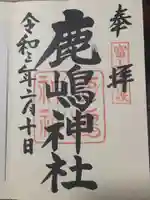 奉拝
鹿嶋神社
令和二年六月十日